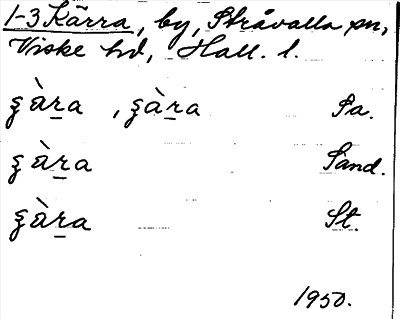 1-3 Kärra, by, Stråvalla sn,
Viske hd, Hall. l.
ʂàra , ʂàra Sa.
ʂàra Sand.
ʂàra St.
1950.